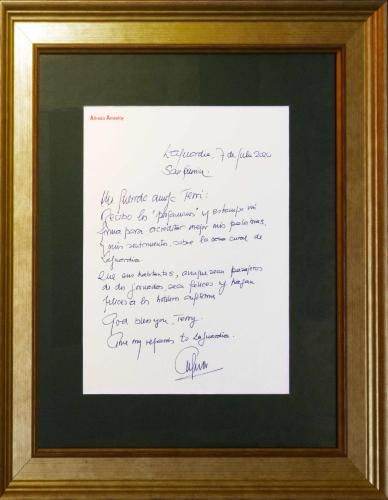 Alfonso Armentia
Laguardia, 7 de Julio 2020
San Fermín.
Mi querido amigo Terri:
Recibo los "pergaminos" y estampo mi
firma para acreditar mejor mis palabras,
y mis sentimientos, sobre la casa rural de
Laguardia.
Que sus habitantes, aunque sean pasajeros
de dos jornadas, sean felices y hagan
felices a los
God bless you, Terry.
Give my regards to Laguardia.